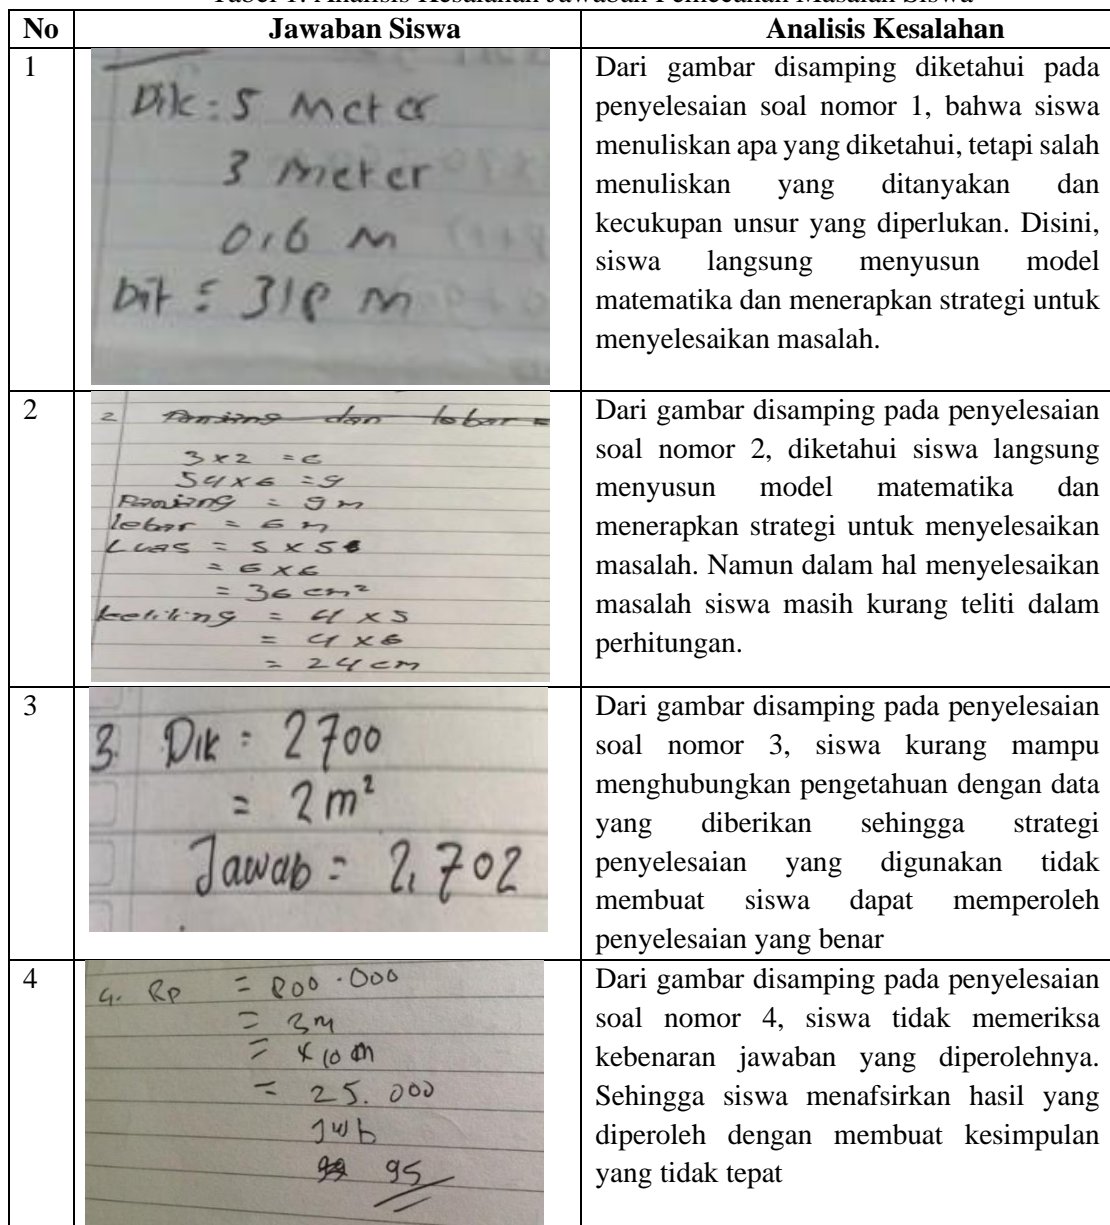 Tabel 1. Analisis Kesalahan Jawaban Pemecahan Masalah Siswa
No Jawaban Siswa Analisis Kesalahan
1
Dik : 5 Meter
3 Meter
0,6 M
Dit = 3,8 m
Dari gambar disamping diketahui pada
penyelesaian soal nomor 1, bahwa siswa
menuliskan apa yang diketahui, tetapi salah
menuliskan yang ditanyakan dan
kecukupan unsur yang diperlukan. Disini,
siswa langsung menyusun model
matematika dan menerapkan strategi untuk
menyelesaikan masalah.
2
2 Panjang dan lebar =
3 x 2 = 6
54 x 6 = 9
Panjang = 9 m
lebar = 6 m
Luas = 5 x 5
= 6 x 6
= 36 cm²
keliling = 4 x 5
= 4 x 6
= 24 cm
Dari gambar disamping pada penyelesaian
soal nomor 2, diketahui siswa langsung
menyusun model matematika dan
menerapkan strategi untuk menyelesaikan
masalah. Namun dalam hal menyelesaikan
masalah siswa masih kurang teliti dalam
perhitungan.
3
3. Dik = 2700
= 2 m²
Jawab = 2,702
Dari gambar disamping pada penyelesaian
soal nomor 3, siswa kurang mampu
menghubungkan pengetahuan dengan data
yang diberikan sehingga strategi
penyelesaian yang digunakan tidak
membuat siswa dapat memperoleh
penyelesaian yang benar
4
4. Rp = 800.000
= 3m
= x 10 m
= 25.000
Jwb
95
Dari gambar disamping pada penyelesaian
soal nomor 4, siswa tidak memeriksa
kebenaran jawaban yang diperolehnya.
Sehingga siswa menafsirkan hasil yang
diperoleh dengan membuat kesimpulan
yang tidak tepat